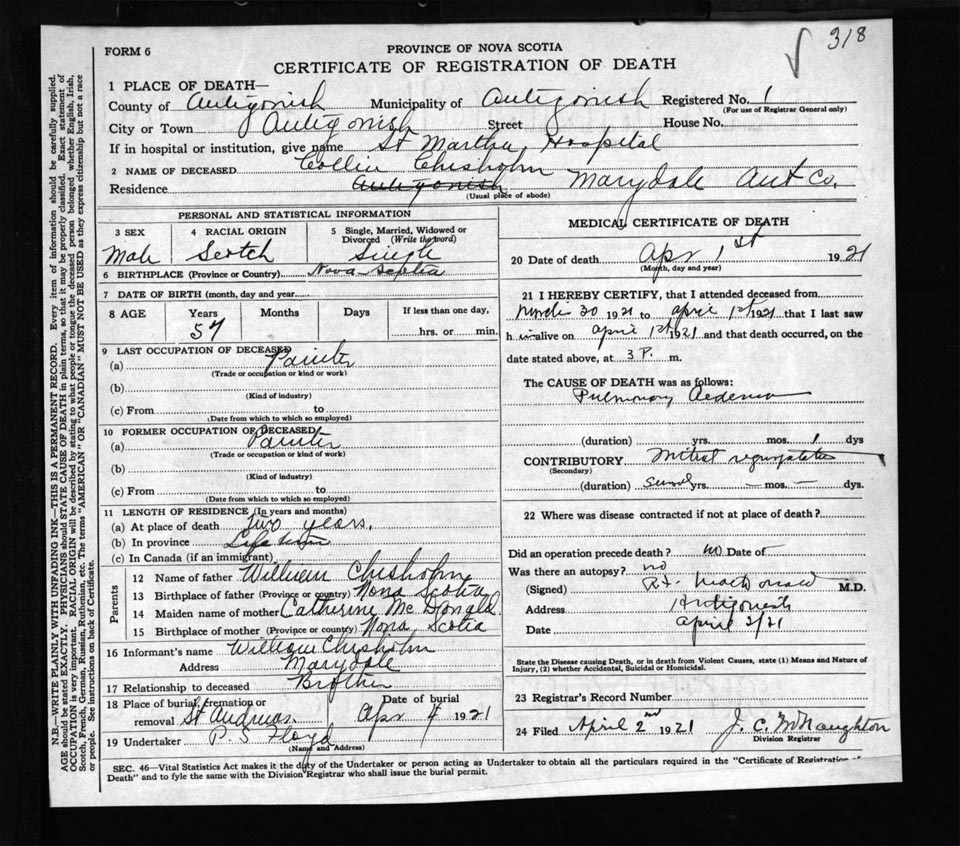 318
FORM 6
PROVINCE OF NOVA SCOTIA
CERTIFICATE OF REGISTRATION OF DEATH
1 PLACE OF DEATH—
County of Antigonish Municipality of Antigonish Registered No. 1
(For use of Registrar General only)
City or Town Antigonish Street House No.
If in hospital or institution, give name St Martha Hospital
2 NAME OF DECEASED Collin Chisholm
Residence Antigonish Marydale Ant Co.
(Usual place of abode)
PERSONAL AND STATISTICAL INFORMATION
3 SEX
Male
4 RACIAL ORIGIN
Scotch
5 Single, Married, Widowed or
Divorced (Write the word)
Single
6 BIRTHPLACE (Province or Country) Nova Scotia
7 DATE OF BIRTH (month, day and year
8 AGE Years Months Days If less than one day,
57 hrs. or min.
9 LAST OCCUPATION OF DECEASED
(a) Painter
(Trade or occupation or kind or work)
(b)
(Kind of industry)
(c) From to
(Date from which to which so employed)
10 FORMER OCCUPATION OF DECEASED
(a) Painter
(Trade or occupation or kind of work)
(b)
(Kind of industry)
(c) From to
(Date from which to which so employed)
11 LENGTH OF RESIDENCE (In years and months)
(a) At place of death Two years.
(b) In province Life time
(c) In Canada (if an immigrant)
Parents
12 Name of father William Chisholm
13 Birthplace of father (Province or country) Nova Scotia
14 Maiden name of mother Catherine McDonald
15 Birthplace of mother (Province or country) Nova Scotia
16 Informant's name William Chisholm
Address Marydale
17 Relationship to deceased Brother
18 Place of burial, cremation or Date of burial
removal St Andrews. Apr 4 1921
19 Undertaker P. S Floyd
(Name and Address)
MEDICAL CERTIFICATE OF DEATH
20 Date of death Apr 1st 1921
(Month, day and year)
21 I HEREBY CERTIFY, that I attended deceased from
March 20 1921 to April 1st 1921 that I last saw
h im alive on April 1st 1921 and that death occurred, on the
date stated above, at 3 P. m.
The CAUSE OF DEATH was as follows:
Pulmonary Oedema
(duration) yrs. mos. 1 dys
CONTRIBUTORY Mitral regurgitation
(Secondary)
(duration) several yrs. — mos. — dys.
22 Where was disease contracted if not at place of death?
Did an operation precede death? no Date of —
Was there an autopsy? no
(Signed) MacDonald M.D.
Address Antigonish
Date April 2/21
State the Disease causing Death, or in death from Violent Causes, state (1) Means and Nature of
Injury, (2) whether Accidental, Suicidal or Homicidal.
23 Registrar's Record Number
24 Filed April 2nd 1921 J. C. McNaughton
Division Registrar
SEC. 46—Vital Statistics Act makes it the duty of the Undertaker or person acting as Undertaker to obtain all the particulars required in the "Certificate of Registration of
Death" and to fyle the same with the Division Registrar who shall issue the burial permit.
N.B.—WRITE PLAINLY WITH UNFADING INK—THIS IS A PERMANENT RECORD. Every item of information should be carefully supplied.
AGE should be stated EXACTLY. PHYSICIANS should STATE CAUSE OF DEATH in plain terms, so that it may be properly classified. Exact statement of
OCCUPATION is very important. RACIAL ORIGIN will be described by stating to what people or tongue the deceased person belonged whether English, Irish,
Scotch, French, German, Russian, Ruthenian, etc. The terms "AMERICAN" OR "CANADIAN" MUST NOT BE USED as they express citizenship but not a race
or people. See instructions on back of Certificate.